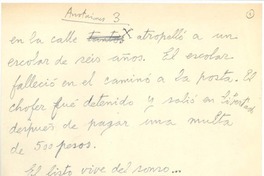 Anotaciones 3
en la calle tantos x atropelló a un
escolar de seis años. El escolar
falleció en el camino a la posta. El
chofer fué detenido y salió en libertad
después de pagar una multa
de 500 pesos.
El listo vive del sonso...